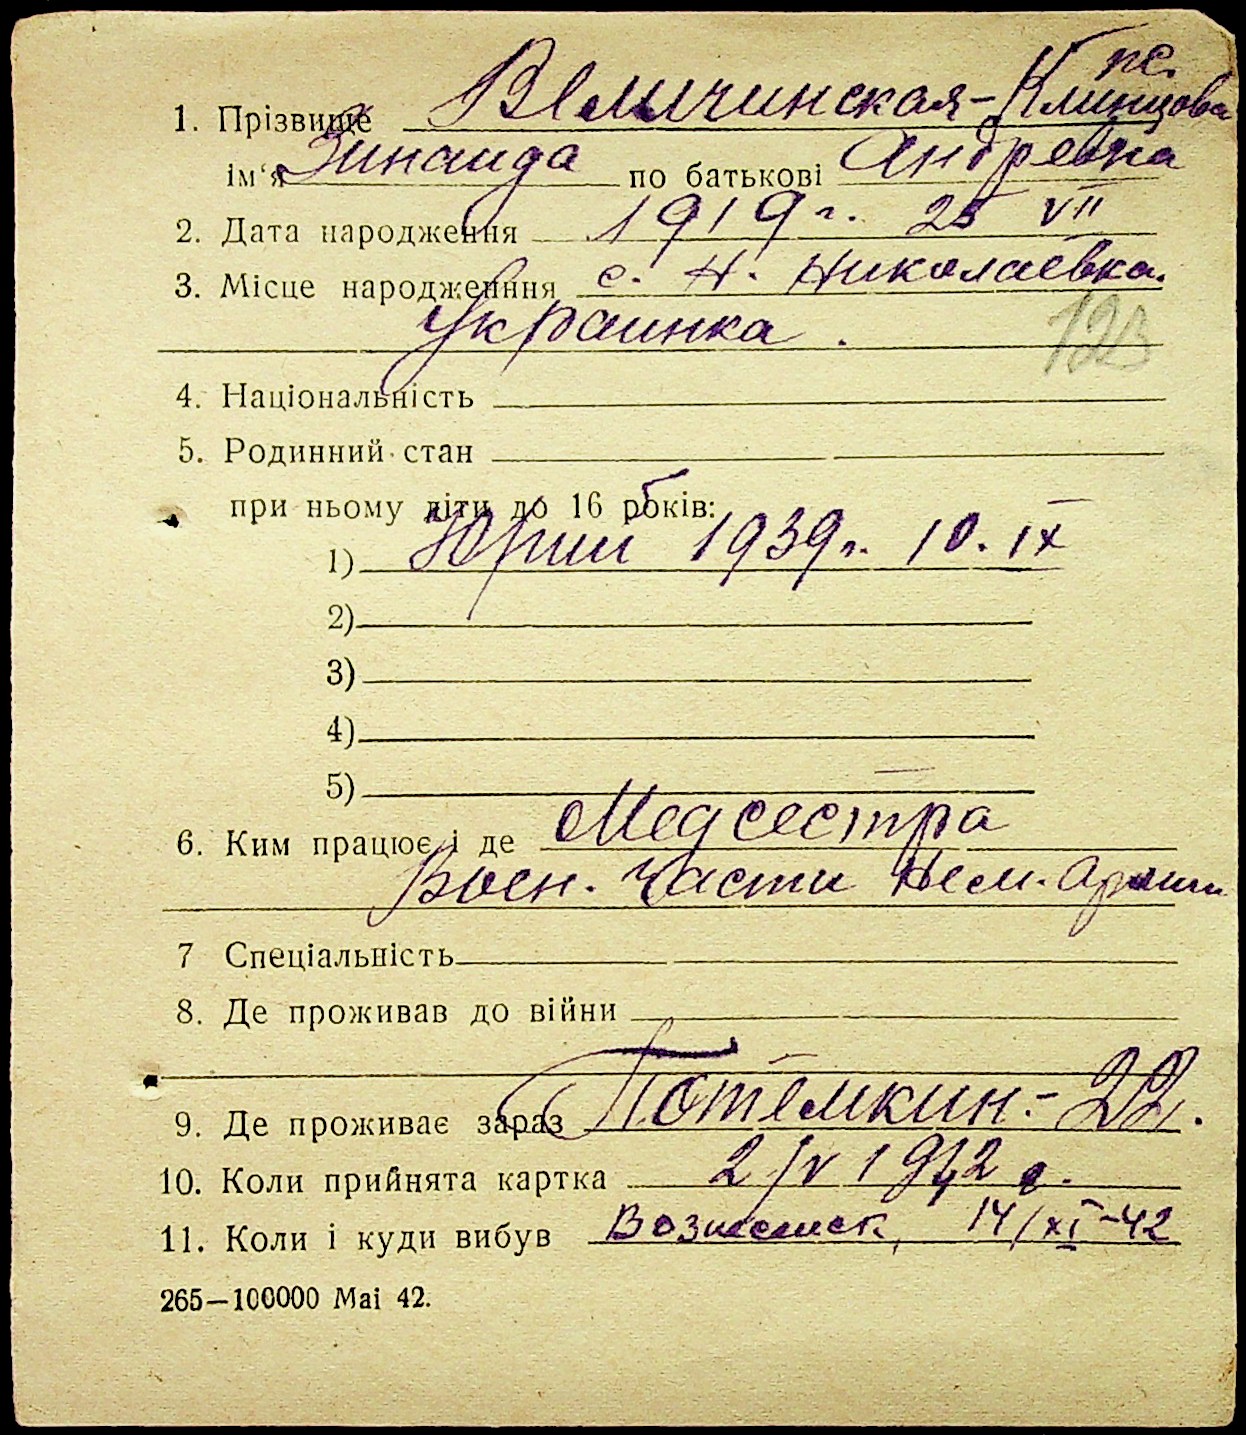 пс.
1. Прізвище Величинская-Клинцова
ім'я Зинаида по батькові Андревна
2. Дата народження 1919 г. 25 VII
3. Місце народженння с. Н. Николаевка.
Украинка.
123
4. Національність
5. Родинний стан
при ньому діти до 16 років:
1) Юрий 1939 г. 10. IX
2)
3)
4)
5)
6. Ким працює і де Медсестра
Воен. части Нем. Армии
7 Спеціальність
8. Де проживав до війни
9. Де проживає зараз Потемкин.- 22.
10. Коли прийнята картка 2/V 1942 г.
11. Коли і куди вибув Вознесенск, 14/XI-42
265—100000 Mai 42.